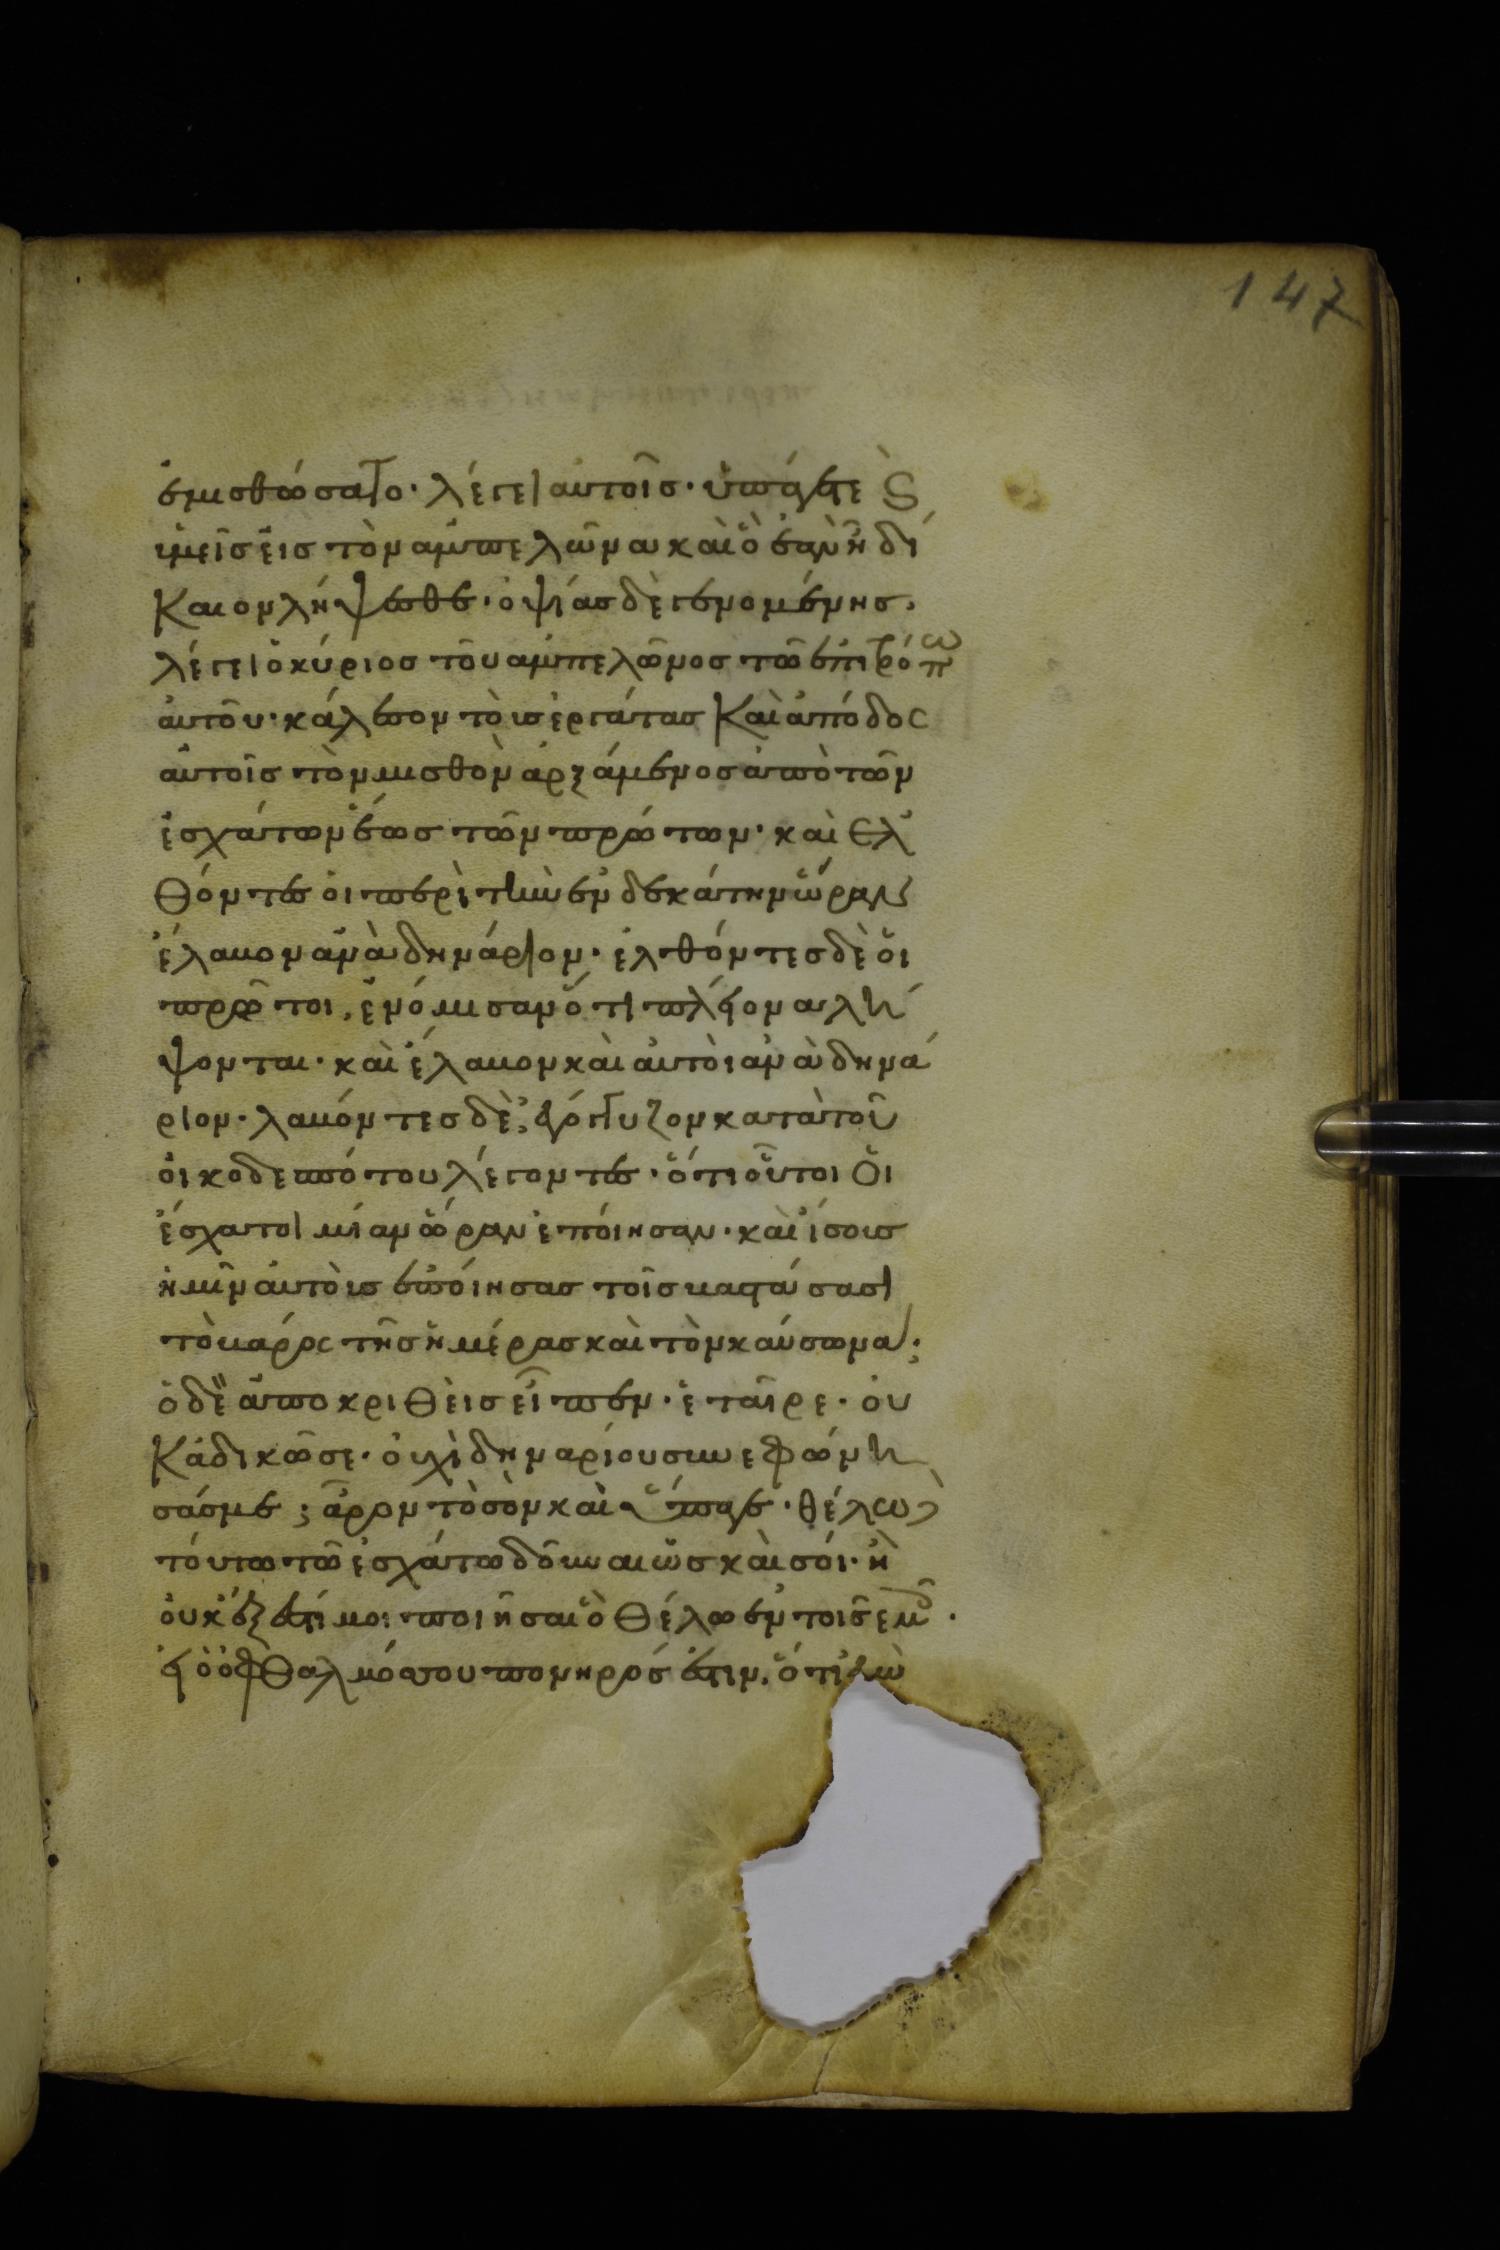 147
ἐμισθώσατο· λέγει αὐτοῖσ· ὑπάγετε ϗ
ὑμεῖσ εἰσ τὸν ἀμπελῶνα καὶ ὃ ἐὰν ἦ δί
καιον λήψεσθε· ὀψίασ δὲ γενομένησ·
λέγει ὁ κύριοσ τοῦ ἀμπελῶνοσ τῶ ἐπιτρόπω
ἀυτοῦ· κάλεσον τοὺσ ἐργάτασ καὶ ἀπόδοσ
αὐτοῖσ τὸν μισθὸν ἀρξάμενοσ ἀπὸ τῶν
ἐσχάτων ἕωσ τῶν πρώτων· καὶ ἐλ
θόντεσ ὁι περὶ τὴν ἑνδεκάτην ὥραν
ἔλαβον ἀνὰ δηνάριον· ἐλθόντεσ δὲ ὁι
πρῶτοι, ἐνόμισαν ὅτι πλείονα λή
ψονται· καὶ ἔλαβον καὶ ἀυτὸι ἀνὰ δηνά
ριον· λαβόντεσ δὲ ἐγόγγυζον κατὰ τοῦ
ὀικοδεσπότου λέγοντεσ· ὅτι οὗτοι ὁι
ἔσχατοι μίαν ὥραν ἐπόιησαν· καὶ ἴσουσ
ἡμῖν ἀυτοὺσ ἐπόιησασ τοῖσ βαστάσασι
τὸ βάροσ τῆσ ἡμέρασ καὶ τὸν κάυσωνα;
ὁ δὲ ἀποκριθεὶσ εἶπεν· ἑταῖρε· ὀυ
κ ἀδικῶ σε· ὀυχὶ δηναρίου συνεφώνη
σάσ με; ἆρον τὸ σὸν καὶ ὕπαγε· θέλω
τούτω τῶ ἐσχάτω δοῦναι ὡσ καὶ σόι· ἢ
ὀυκ ἔξεστί μοι ποιῆσαι ὃ θέλω ἐν τοῖσ ἐμοῖσ·
εἰ ὁ ὀφθαλμόσ σου πονηρόσ ἐστιν, ὅτι ἐγὼ